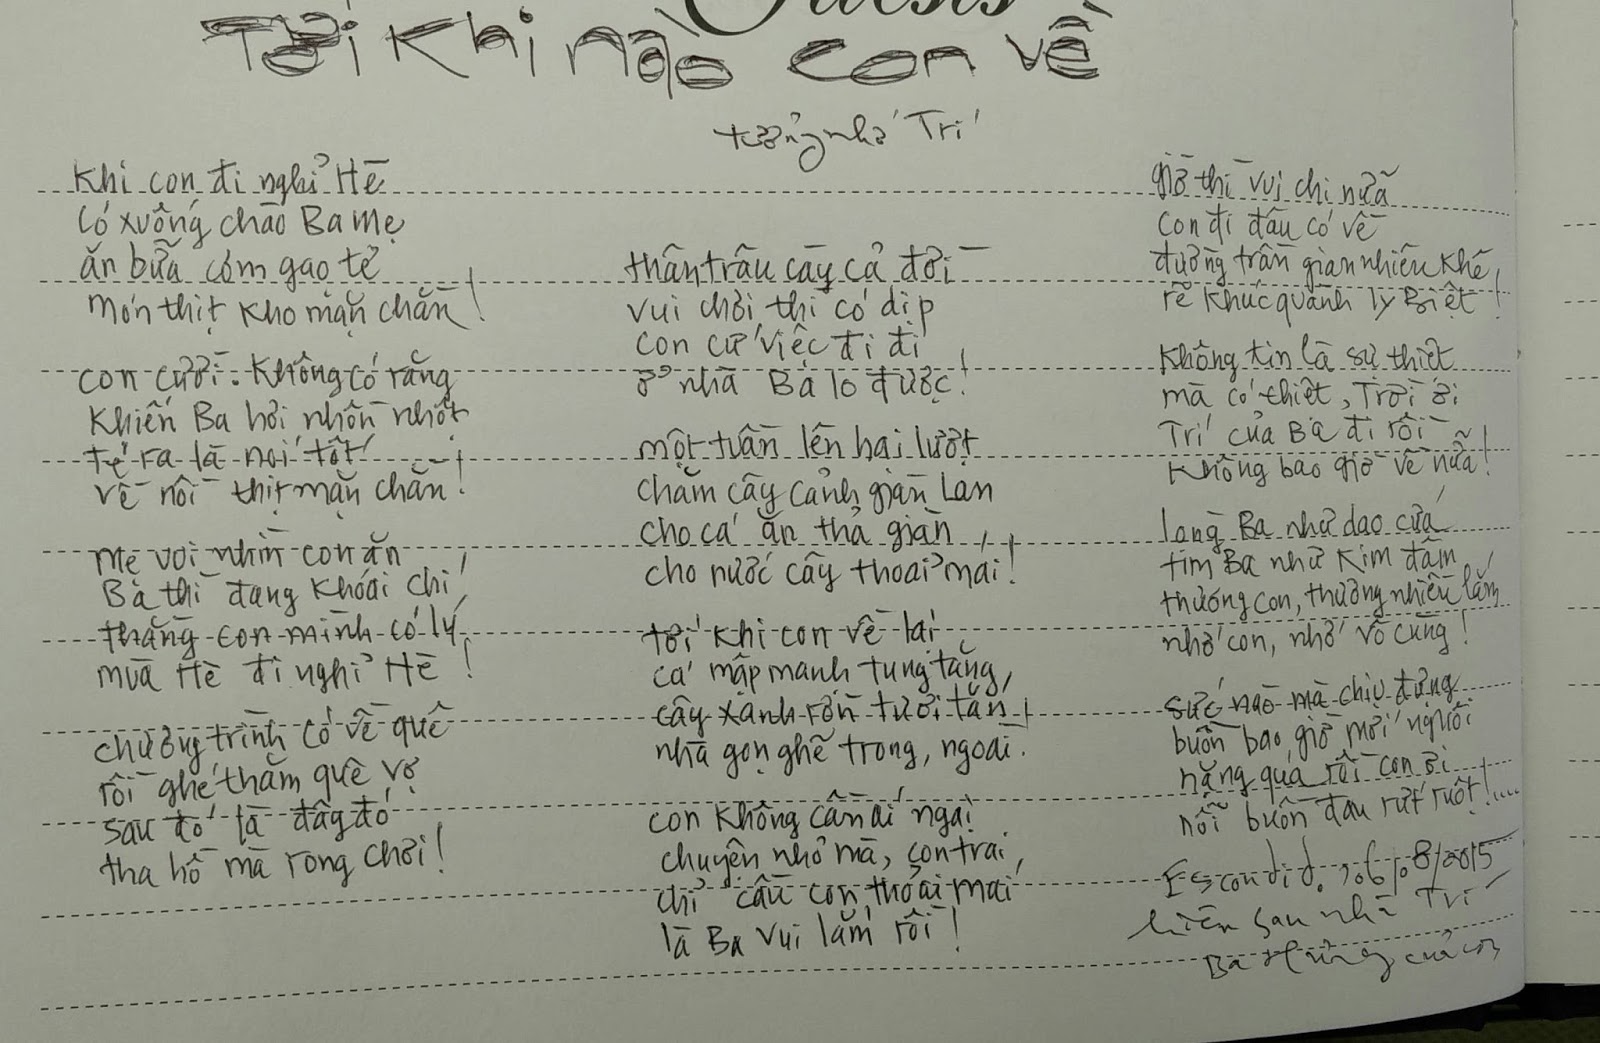 Guests
Tới Khi nào con về
tưởng nhớ Trí
Khi con đi nghỉ Hè
Có xuống chào Ba Mẹ
ăn bữa cơm gạo tẻ
món thịt kho mặn chằn!
con cười. Không có răng
Khiến Ba hơi nhồn nhột
té ra là nói tốt
về nồi thịt mặn chằn!
Mẹ vơi nhìn con ăn
Ba thì đang khoái chí,
thằng con mình có lý
mùa Hè đi nghỉ Hè!
chương trình có về quê
rồi ghé thăm quê vợ
sau đó là đây đó
tha hồ mà rong chơi!
thân trâu cày cả đời
vui chơi thì có dịp
con cứ việc đi đi
ở nhà Ba lo được!
một tuần lên hai lượt
chăm cây cảnh giàn Lan
cho cá ăn thả giàn,
cho nước cây thoải mái!
tới khi con về lại
cá mập mạnh tung tăng,
cây xanh rờn tươi tắn,
nhà gọn ghẽ trong, ngoài.
con không cần ái ngại
chuyện nhỏ mà, con trai,
chỉ cần con thoải mái
là Ba vui lắm rồi!
giờ thì vui chi nữa
con đi đâu có về
đường trần gian nhiêu khê,
rẽ khúc quành ly Biệt!
Không tin là sự thiệt
mà có thiệt, Trời ơi
Trí của Ba đi rồi
Không bao giờ về nữa!
lòng Ba như dao cứa
tim Ba như Kim đâm
thương con, thương nhiều lắm
nhớ con, nhớ vô cùng!
sức nào mà chịu đựng
buồn bao giờ mới nguôi
nặng quá rồi con ơi
nỗi buồn đau rứt ruột!....
Escondido, 06/08/2015
hiên sau nhà Trí
Ba Hưng của con